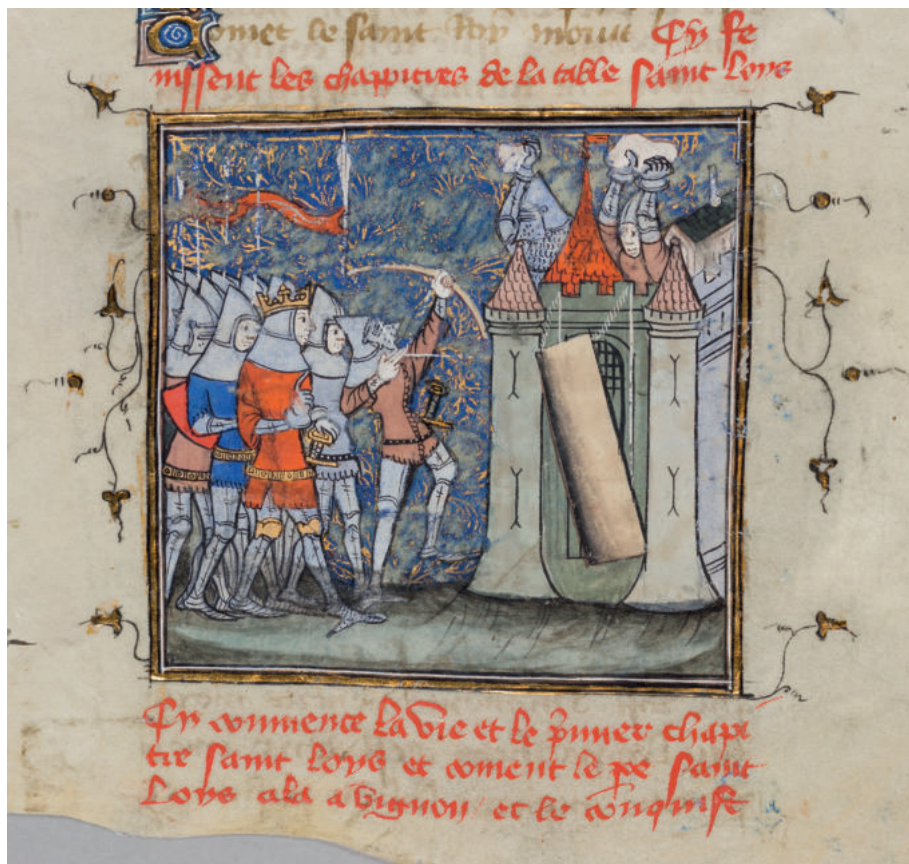 Comet le saint Roy morut Cy fe
nissent les chappitres de la table saint loys
Cy commence la vie et le p̄mier chapi
tre saint loys et coment le pe saint
loys ala avignon et le conquist